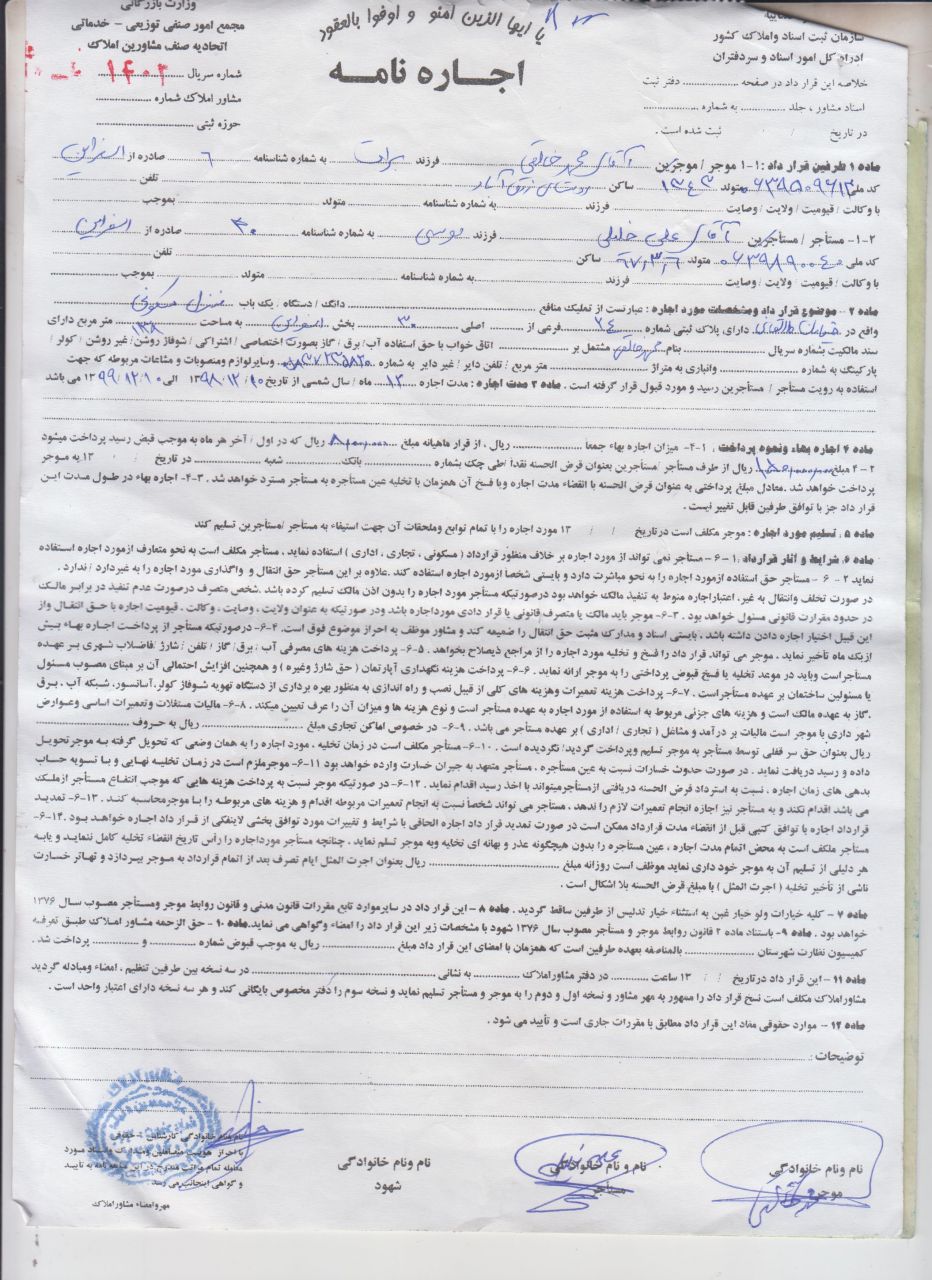 وزارت بازرگانی
مجمع امور صنفی توزیعی - خدماتی
اتحادیه صنف مشاورین املاک
شماره سریال ۱۴۰۲
مشاور املاک شماره
حوزه ثبتی
یا ایها الذین آمنو و اوفوا بالعقود
اجـاره نامـه
سازمان ثبت اسناد واملاک کشور
اداره کل امور اسناد و سردفتران
خلاصه این قرار داد در صفحه دفتر ثبت
اسناد مشاور ، جلد به شماره
در تاریخ / / ثبت شده است .
ماده ۱ طرفین قرار داد : ۱-۱ موجر / موجرین آقای محمد خالقی فرزند برات به شماره شناسنامه ۶ صادره از اسفراین
کد ملی متولد ۱۳۴۳ ساکن روستای تلفن
با وکالت / قیومیت / ولایت / وصایت فرزند به شماره شناسنامه متولد بموجب
۱-۲ - مستأجر / مستأجرین آقای علی خلیلی فرزند موسی به شماره شناسنامه ۳۰ صادره از اسفراین
کد ملی متولد ۶۷٫۳٫۶ ساکن تلفن
با وکالت / قیومیت / ولایت / وصایت فرزند به شماره شناسنامه متولد بموجب
ماده ۲ - موضوع قرار داد ومشخصات مورد اجاره : عبارتست از تملیک منافع دانگ / دستگاه . یک باب منزل مسکونی
واقع در خیابان طالقانی دارای پلاک ثبتی شماره ۲۴ فرعی از اصلی ۳۰ بخش اسفراین به مساحت ۱۳۸ متر مربع دارای
سند مالکیت بشماره سریال بنام محمد خالقی مشتمل بر اتاق خواب با حق استفاده آب / برق / گاز بصورت اختصاصی / اشتراکی / شوفاژ روشن / غیر روشن / کولر /
پارکینگ به شماره وانباری به متراژ متر مربع / تلفن دایر / غیر دایر به شماره وسایرلوازم ومنصوبات و مشاعات مربوطه که جهت
استفاده به رویت مستأجر / مستأجرین رسید و مورد قبول قرار گرفته است . ماده ۳ مدت اجاره : مدت اجاره ۱۲ ماه / سال شمسی از تاریخ ۱۳۹۸/۱۲/۱۰ الی ۱۳۹۹/۱۲/۱۰ می باشد
ماده ۴ اجاره بهاء ونحوه پرداخت . ۱-۴- میزان اجاره بهاء جمعاً ریال ، از قرار ماهیانه مبلغ ریال که در اول / آخر هر ماه به موجب قبض رسید پرداخت میشود
۲-۴ مبلغ ریال از طرف مستأجر /مستأجرین بعنوان قرض الحسنه نقدا /طی چک بشماره بانک شعبه در تاریخ / / ۱۳ به موجر
پرداخت خواهد شد .معادل مبلغ پرداختی به عنوان قرض الحسنه با انقضاء مدت اجاره ویا فسخ آن همزمان با تخلیه عین مستأجره به مستأجر مسترد خواهد شد . ۳-۴- اجاره بهاء در طـول مـدت این
قرار داد جز با توافق طرفین قابل تغییر نیست .
ماده ۵ . تسلیم مورد اجاره : موجر مکلف است درتاریخ / / ۱۳ مورد اجاره را با تمام توابع وملحقات آن جهت استیفاء به مستأجر /مستأجرین تسلیم کند
ماده ۶. شرایط و آثار قرارداد .۱-۶- مستأجر نمی تواند از مورد اجاره بر خلاف منظور قرارداد ( مسکونی ، تجاری ، اداری ) استفاده نماید . مستأجر مکلف است به نحو متعارف ازمورد اجاره استـفاده
نماید ۲-۶- مستأجر حق استفاده ازمورد اجاره را به نحو مباشرت دارد و بایستی شخصا ازمورد اجاره استفاده کند .علاوه بر این مستأجر حق انتقال و واگذاری مورد اجاره را به غیردارد / ندارد .
در صورت تخلف وانتقال به غیر، اعتباراجاره منوط به تنفیذ مالک خواهد بود درصورتیکه مستأجر مورد اجاره را بدون اذن مالک تسلیم کرده باشد .شخص متصرف درصورت عدم تنفیذ در برابر مالـک
در حدود مقررات قانونی مسئول خواهد بود . ۳-۶- موجر باید مالک یا متصرف قانونی یا قرار دادی مورداجاره باشد ودر صورتیکه به عنوان ولایت ، وصایت ، وکالت ، قیومیت اجاره با حـق انتقـال واز
این قبیل اختیار اجاره دادن داشته باشد . بایستی اسناد و مدارک مثبت حق انتقال را ضمیمه کند و مشاور موظف به احراز موضوع فوق است .۴-۶- درصورتیکه مستأجر از پرداخـت اجـاره بهـاء بیـش
ازیک ماه تأخیر نماید . موجر می تواند قرار داد را فسخ و تخلیه مورد اجاره را از مراجع ذیصلاح بخواهد . ۵-۶- پرداخت هزینه های مصرفی آب / برق/ گاز / تلفن / شارژ /فاضلاب شهری بـر عهـده
مستأجراست وباید در موعد تخلیه یا فسخ قبوض پرداختی را به موجر ارائه نماید . ۶-۶- پرداخت هزینه نگهداری آپارتمان ( حق شارژ وغیره ) و همچنین افزایش احتمالی آن بر مبنای مصـوب مسئـول
یا مسئولین ساختمان بر عهده مستأجراست . ۷-۶- پرداخت هزینه تعمیرات وهزینه های کلی از قبیل نصب و راه اندازی به منظور بهره برداری از دستگاه تهویه شوفاژ کولر،آسانسور، شبکه آب ، بـرق
،گاز به عهده مالک است و هزینه های جزئی مربوط به استفاده از مورد اجاره به عهده مستأجر است و نوع هزینه ها و میزان آن را عرف تعیین میکند . ۸-۶- مالیات مستغلات وتعمیرات اساسی وعوارض
شهر داری با موجر است مالیات بر درآمد و مشاغل ( تجاری / اداری ) بر عهده مستأجر می باشد . ۹-۶- در خصوص اماکن تجاری مبلغ ریال به حـروف
ریال بعنوان حق سر قفلی توسط مستأجر به موجر تسلیم وپرداخت گردید/ نگردیده است . ۱۰-۶- مستأجر مکلف است در زمان تخلیه ، مورد اجاره را به همان وضعی که تحویل گرفته به موجرتحویـل
داده و رسید دریافت نماید . در صورت حدوث خسارات نسبت به عین مستأجره . مستأجر متعهد به جبران خسارت وارده خواهد بود ۱۱-۶- موجرملزم است در زمـان تخلیـه نهـایی و بـا تسویه حساب
بدهی های زمان اجاره ، نسبت به استرداد قرض الحسنه دریافتی ازمستأجرمیتواند با اخذ رسید اقدام نماید . ۱۲-۶- در صورتیکه موجر نسبت به پرداخت هزینه هایی که موجب انتفاع مستأجر ازملـک
می باشد اقدام نکند و به مستأجر نیز اجازه انجام تعمیرات لازم را ندهد . مستأجر می تواند شخصاً نسبت به انجام تعمیرات مربوطه اقدام و هزینه های مربوطـه را بـا موجرمحاسبه کنـد . ۱۳-۶- تمدید
قرارداد اجاره با توافق کتبی قبل از انقضاء مدت قرارداد ممکن است در صورت تمدید قرار داد اجاره الحاقی با شرایط و تغییرات مورد توافق بخشی لاینفکی از قـرار داد اجـاره خواهـد بـود .۱۴-۶-
مستأجر مکلف است به محض اتمام مدت اجاره ، عین مستأجره را بدون هیچگونه عذر و بهانه ای تخلیه وبه موجر تسلیم نماید . چنانچه مستأجر مورداجاره را رأس تاریخ انقضاء تخلیه کامل ننمایـد و یابـه
هر دلیلی از تسلیم آن به موجر خود داری نماید موظف است روزانه مبلغ ریال بعنوان اجرت المثل ایام تصرف بعد از اتمام قرارداد به موجر بپردازد و تهاتر خسارت
ناشی از تأخیر تخلیه ( اجرت المثل ) با مبلغ قرض الحسنه بلا اشکال است .
ماده ۷ - کلیه خیارات ولو خیار غبن به استثناء خیار تدلیس از طرفین ساقط گردید . ماده ۸- این قرار داد در سایرموارد تابع مقررات قانون مدنی و قانون روابط موجر ومستأجر مصوب سـال ۱۳۷۶
خواهد بود . ماده ۹- باستناد ماده ۲ قانون روابط موجر و مستأجر مصوب سال ۱۳۷۶ شهود با مشخصات زیر این قرار داد را امضاء وگواهی می نماید.ماده ۱۰ - حق الزحمه مشاور امـلاک طبـق تعرفـه
کمیسیون نظارت شهرستان بالمناصفه بعهده طرفین است که همزمان با امضای این قرار داد مبلغ ریال به موجب قبوض شماره و پرداخت شد .
ماده ۱۱ - این قرار داد درتاریخ / / ۱۳ ساعت در دفتر مشاوراملاک به نشانی در سه نسخه بین طرفین تنظیم . امضاء ومبادله گردید
مشاوراملاک مکلف است نسخ قرار داد را ممهور به مهر مشاور و نسخه اول و دوم را به موجر و مستأجر تسلیم نماید و نسخه سوم را دفتر مخصوص بایگانی کند و هر سه نسخه دارای اعتبار واحد است .
ماده ۱۲ - موارد حقوقی مفاد این قرار داد مطابق با مقررات جاری است و تأیید می شود .
توضیحات :
نام ونام خانوادگی
موجر
نام و نام خانوادگی
مستأجر
نام ونام خانوادگی
شهود
نام ونام خانوادگی کارشناس حقوقی
با احراز هویت متعاملین ومدارک واسناد مـورد
و گواهی اینجانب می رسد
مهروامضاء مشاوراملاک